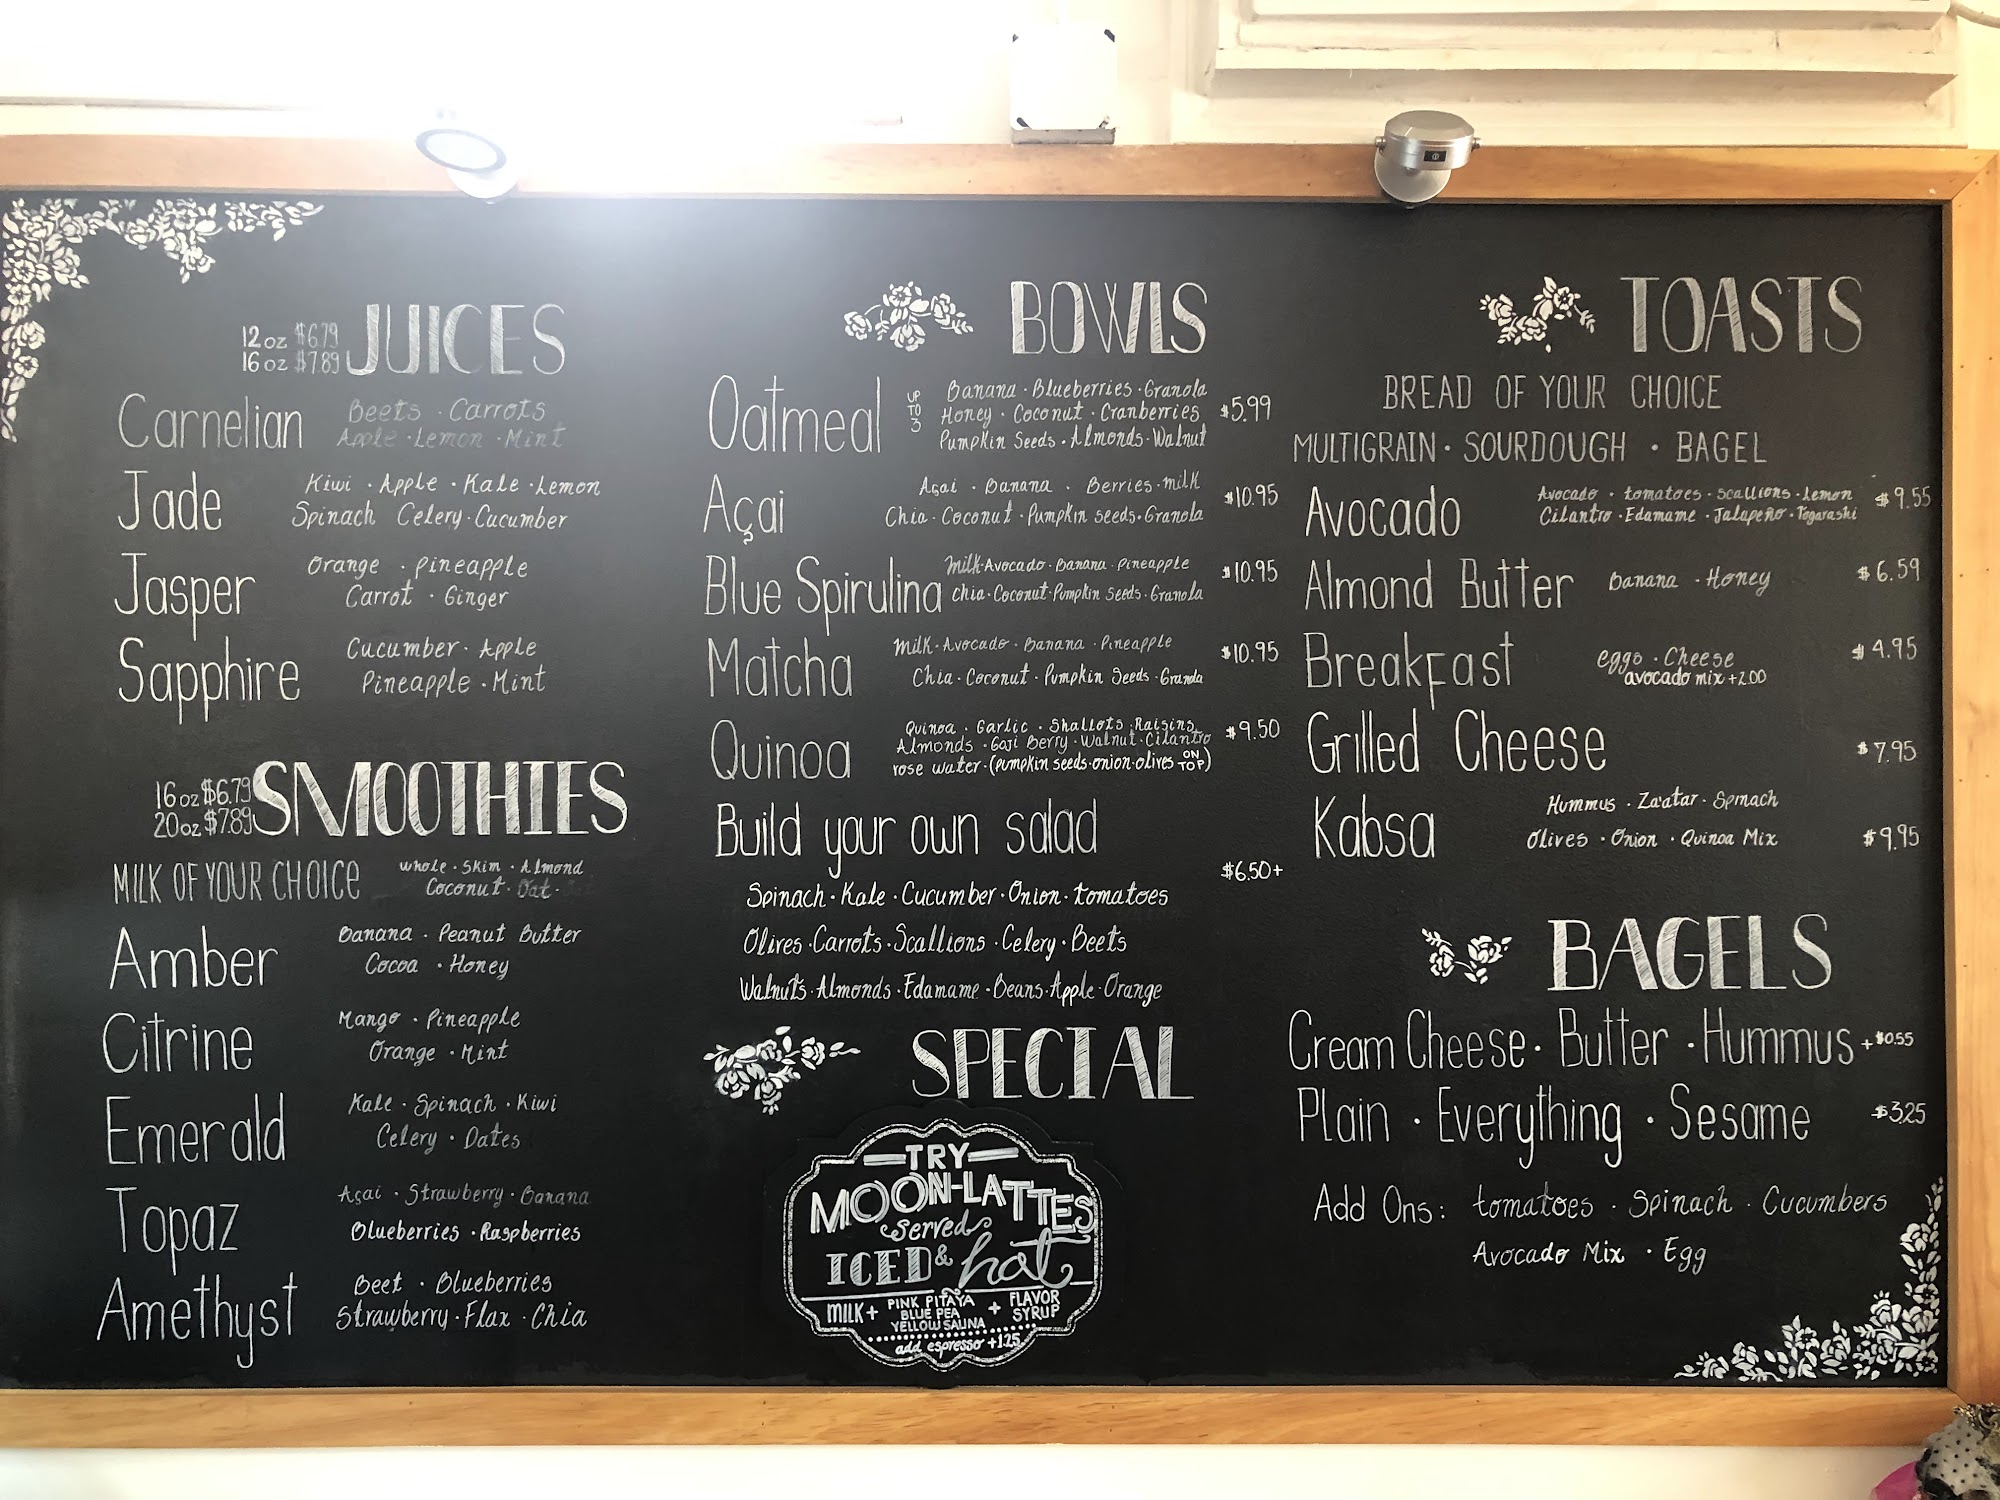 12 oz $6.79
16 oz $7.89
JUICES
Carnelian
Beets · Carrots
Apple · Lemon · Mint
Jade
Kiwi · Apple · Kale · Lemon
Spinach Celery · Cucumber
Jasper
Orange · Pineapple
Carrot · Ginger
Sapphire
Cucumber · Apple
Pineapple · Mint
16 oz $6.79
20 oz $7.89
SMOOTHIES
MILK OF YOUR CHOICE
whole · Skim · Almond
Coconut · Oat ·
Amber
Banana · Peanut Butter
Cocoa · Honey
Citrine
Mango · Pineapple
Orange · Mint
Emerald
Kale · Spinach · Kiwi
Celery · Dates
Topaz
Açai · Strawberry · Banana
Blueberries · Raspberries
Amethyst
Beet · Blueberries
Strawberry · Flax · Chia
BOWLS
Oatmeal
UP TO 3
Banana · Blueberries · Granola
Honey · Coconut · Cranberries
Pumpkin Seeds · Almonds · Walnut
$5.99
Açai
Açai · Banana · Berries · milk
Chia · Coconut · Pumpkin seeds · Granola
$10.95
Blue Spirulina
Milk · Avocado · Banana · Pineapple
Chia · Coconut · Pumpkin Seeds · Granola
$10.95
Matcha
Milk · Avocado · Banana · Pineapple
Chia · Coconut · Pumpkin Seeds · Granola
$10.95
Quinoa
Quinoa · Garlic · Shallots · Raisins
Almonds · Goji Berry · Walnut · Cilantro
rose water · (pumpkin seeds · onion · olives ON TOP)
$9.50
Build your own salad
$6.50+
Spinach · Kale · Cucumber · Onion · tomatoes
Olives · Carrots · Scallions · Celery · Beets
Walnuts · Almonds · Edamame · Beans · Apple · Orange
SPECIAL
TRY
MOON-LATTES
served
ICED & hot
MILK + PINK PITAYA BLUE PEA YELLOW SALINA + FLAVOR SYRUP
add espresso +1.25
TOASTS
BREAD OF YOUR CHOICE
MULTIGRAIN · SOURDOUGH · BAGEL
Avocado
Avocado · tomatoes · scallions · Lemon
Cilantro · Edamame · Jalapeño · Togarashi
$9.55
Almond Butter
Banana · Honey
$6.59
Breakfast
eggs · Cheese
avocado mix +2.00
$4.95
Grilled Cheese
$7.95
Kabsa
Hummus · Za'atar · Spinach
Olives · Onion · Quinoa Mix
$9.95
BAGELS
Cream Cheese · Butter · Hummus +$0.55
Plain · Everything · Sesame $3.25
Add Ons: tomatoes · Spinach · Cucumbers
Avocado Mix · Egg